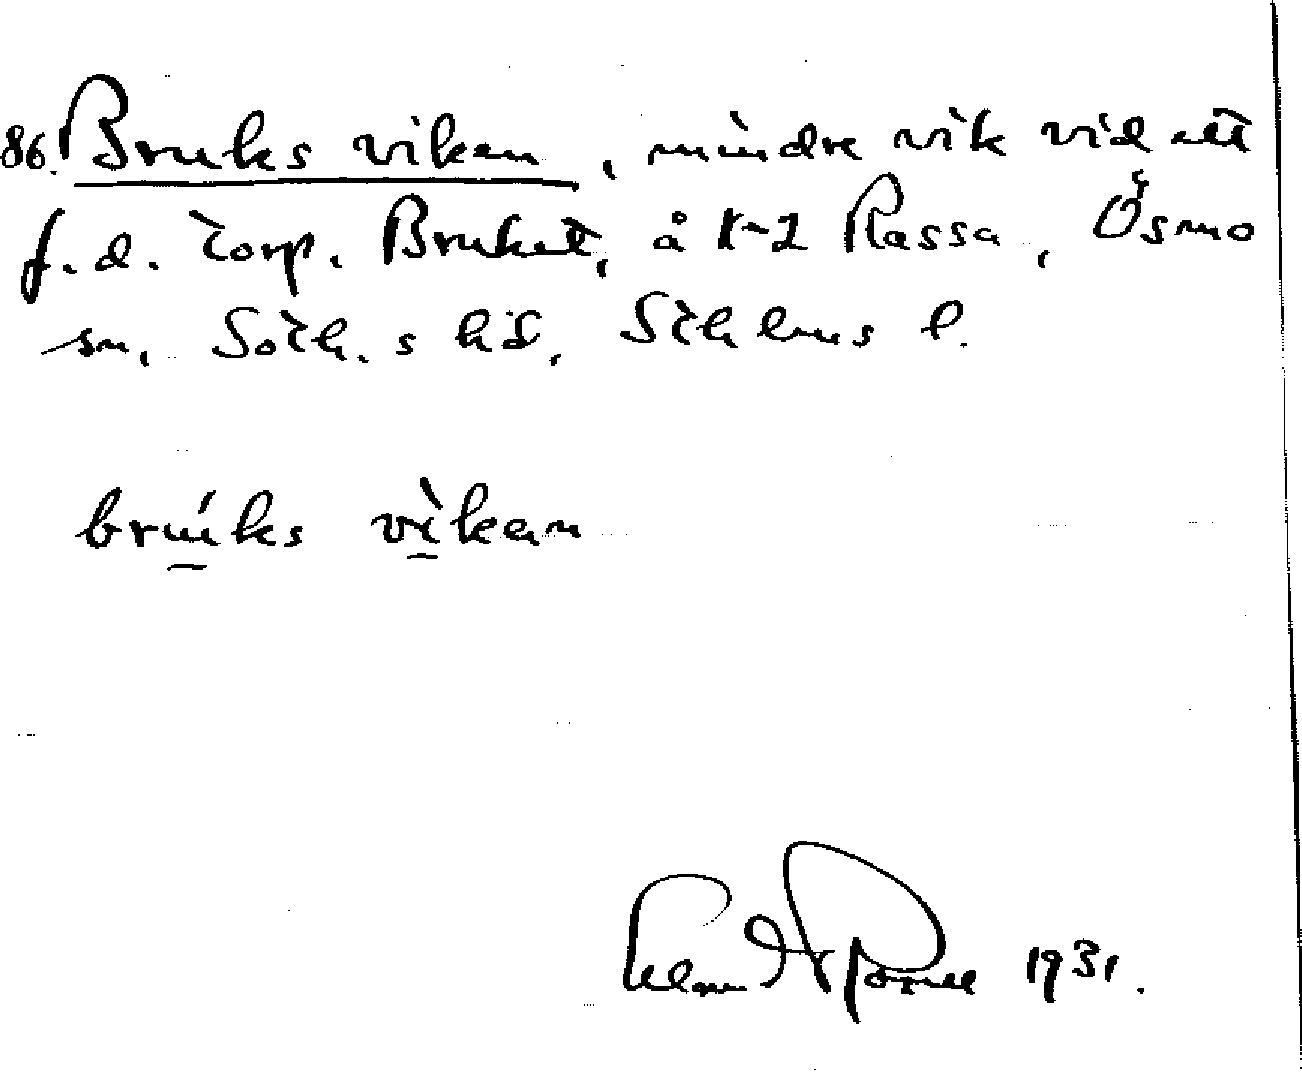 86. Bruksviken, mindre vik vid ett
f.d. torp. Bruket, å 1-2 Rassa, Ösmo
sn, Soth.s hd, Sthlms l.
brúks vìkan
1931.